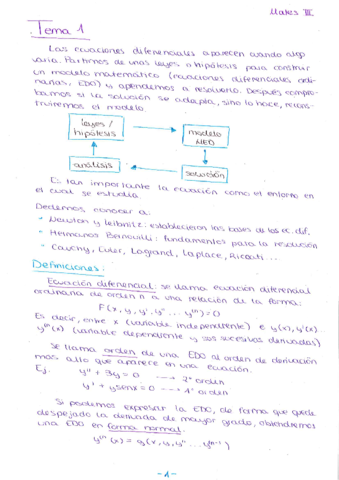 Mates III
Tema 1
Las ecuaciones diferenciales aparecen cuando algo
varía. Partimos de unas leyes o hipótesis para construir
un modelo matemático (ecuaciones diferenciales ordi-
narias, EDO) y aprendemos a resolverlo. Después compro-
bamos si la solución se adapta, si no lo hace, recons-
truiremos el modelo.
leyes / hipótesis
modelo MED
análisis
solución
Es tan importante la ecuación como el entorno en
el cual se estudia.
Debemos conocer a:
* Newton y Leibnitz: establecieron las bases de las ec. dif.
* Hermanos Bernouilli: fundamentos para la resolución
* Cauchy, Euler, Lagrand, Laplace, Ricati...
Definiciones:
Ecuación diferencial: se llama ecuación diferencial
ordinaria de orden n a una relación de la forma:
F(x, y, y', y'' ... y⁽ⁿ⁾) = 0
Es decir, entre x (variable independiente) e y(x), y'(x)...
y⁽ⁿ⁾(x) (variable dependiente y sus sucesivas derivadas)
Se llama orden de una EDO al orden de derivación
más alto que aparece en una ecuación.
Ej. y'' + 3y = 0 ---> 2º orden
y' + y senx = 0 ---> 1er orden
Si podemos expresar la EDO, de forma que quede
despejado la derivada de mayor grado, obtendremos
una EDO en forma normal.
y⁽ⁿ⁾(x) = g(x, y, y' ... y⁽ⁿ⁻¹⁾)
-1-